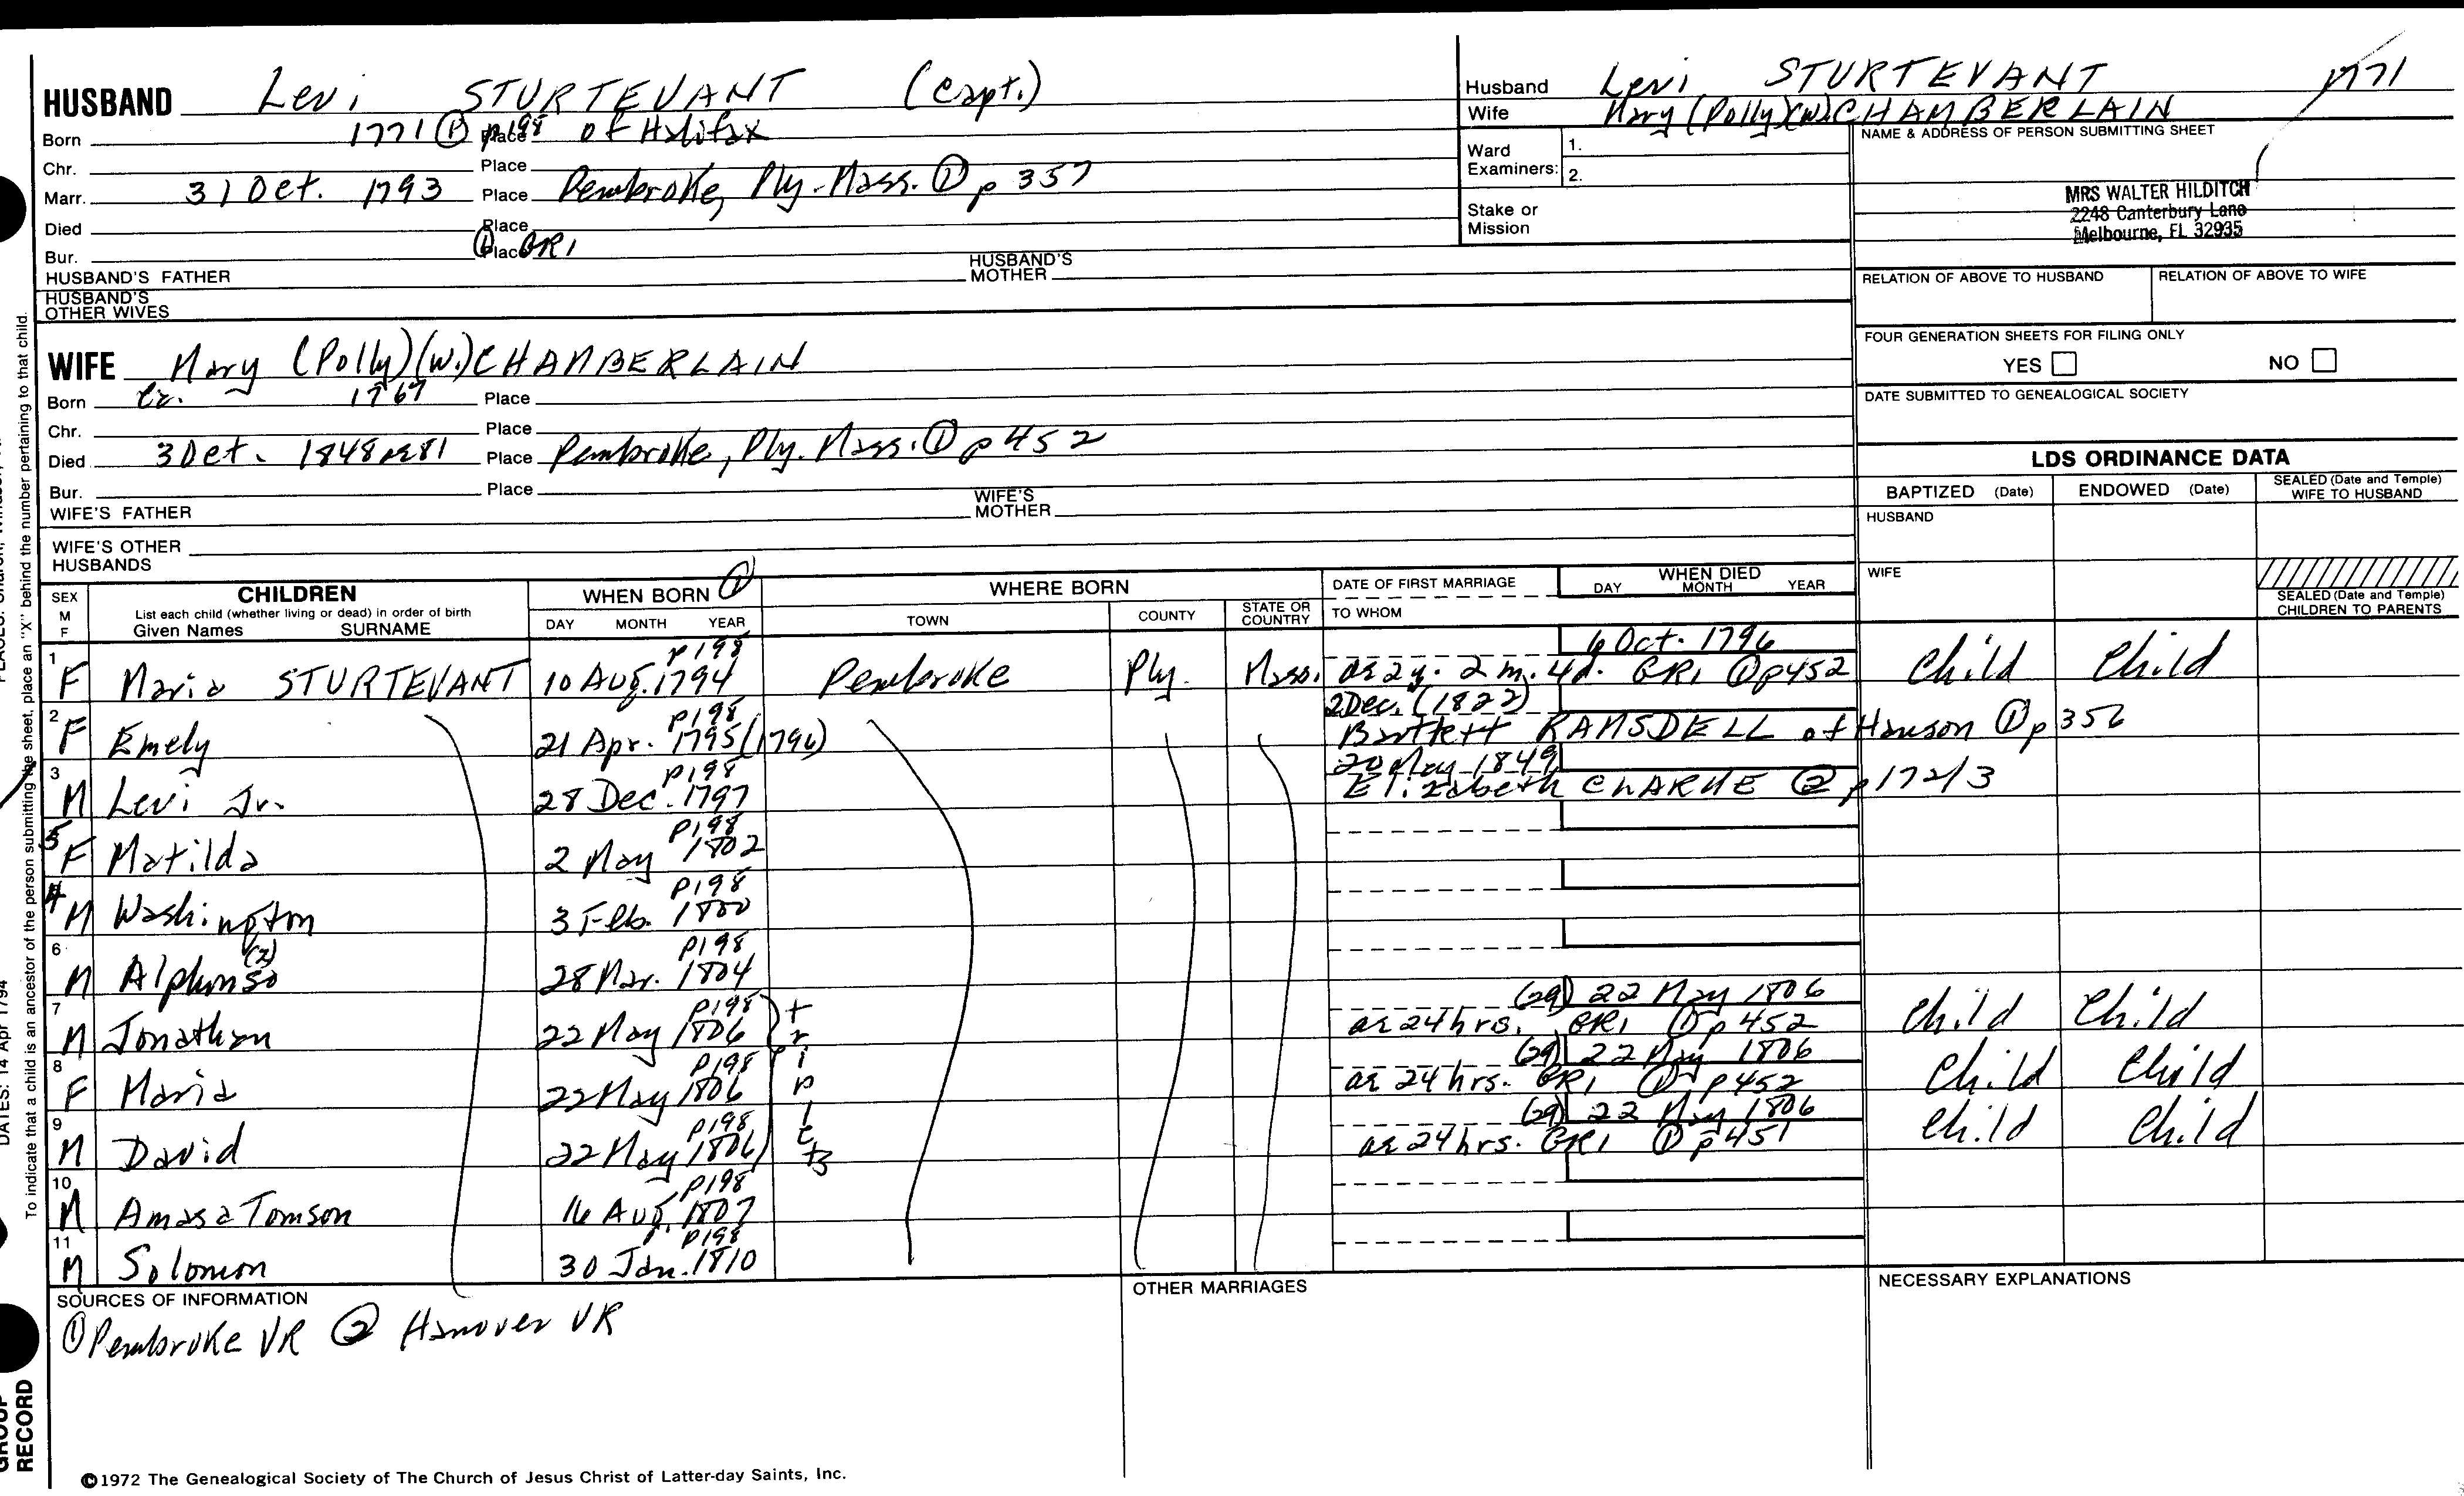 HUSBAND Levi STURTEVANT (Capt.)
Born 1771 ① p198 Place of Halifax
Chr. Place
Marr. 31 Oct. 1793 Place Pembroke, Ply-Mass. ① p 357
Died Place
Bur. Place ① GR1
HUSBAND'S FATHER HUSBAND'S MOTHER
HUSBAND'S OTHER WIVES
Husband Levi STURTEVANT 1771
Wife Mary (Polly)(W.) CHAMBERLAIN
Ward Examiners: 1.
2.
Stake or Mission
NAME & ADDRESS OF PERSON SUBMITTING SHEET
MRS WALTER HILDITCH
2248 Canterbury Lane
Melbourne, FL 32935
RELATION OF ABOVE TO HUSBAND RELATION OF ABOVE TO WIFE
FOUR GENERATION SHEETS FOR FILING ONLY
YES NO
DATE SUBMITTED TO GENEALOGICAL SOCIETY
WIFE Mary (Polly)(W.) CHAMBERLAIN
Born Ca. 1767 Place
Chr. Place
Died 3 Oct. 1848 ae 81 Place Pembroke, Ply. Mass. ① p 452
Bur. Place
WIFE'S FATHER WIFE'S MOTHER
WIFE'S OTHER HUSBANDS
LDS ORDINANCE DATA
BAPTIZED (Date) ENDOWED (Date) SEALED (Date and Temple) WIFE TO HUSBAND
HUSBAND
WIFE
SEALED (Date and Temple) CHILDREN TO PARENTS
SEX M F CHILDREN List each child (whether living or dead) in order of birth Given Names SURNAME
WHEN BORN ① DAY MONTH YEAR
WHERE BORN TOWN COUNTY STATE OR COUNTRY
DATE OF FIRST MARRIAGE TO WHOM
WHEN DIED DAY MONTH YEAR
p198 6 Oct. 1796
1 F Maria STURTEVANT 10 Aug. 1794 Pembroke Ply. Mass. ae 2y. 2 m. 4d. GR1 ① p452 Child Child
p198 2 Dec. (1822)
2 F Emely 21 Apr. 1795 (1796) Bartlett RAMSDELL of Hanson ① p 356
p198 20 May 1849
3 M Levi Jr. 28 Dec. 1797 Elizabeth CLARKE ② p 172/3
p198
5 F Matilda 2 May 1802
p198
4 M Washington 3 Feb. 1800
p198
6 M Alphonso (z) 28 Mar. 1804
p198 (29) 22 May 1806
7 M Jonathan 22 May 1806 ae 24 hrs. GR1 ① p 452 Child Child
p198 (29) 22 May 1806
8 F Maria 22 May 1806 triplets ae 24 hrs. GR1 ① p452 Child Child
p198 (29) 22 May 1806
9 M David 22 May 1806 ae 24 hrs. GR1 ① p451 Child Child
p198
10 M Amasa Tomson 16 Aug. 1807
p198
11 M Solomon 30 Jan. 1810
SOURCES OF INFORMATION OTHER MARRIAGES NECESSARY EXPLANATIONS
① Pembroke VR ② Hanover VR
©1972 The Genealogical Society of The Church of Jesus Christ of Latter-day Saints, Inc.
To indicate that a child is an ancestor of the person submitting the sheet, place an "X" behind the number pertaining to that child.
DATES: 14 Apr 1794
GROUP RECORD